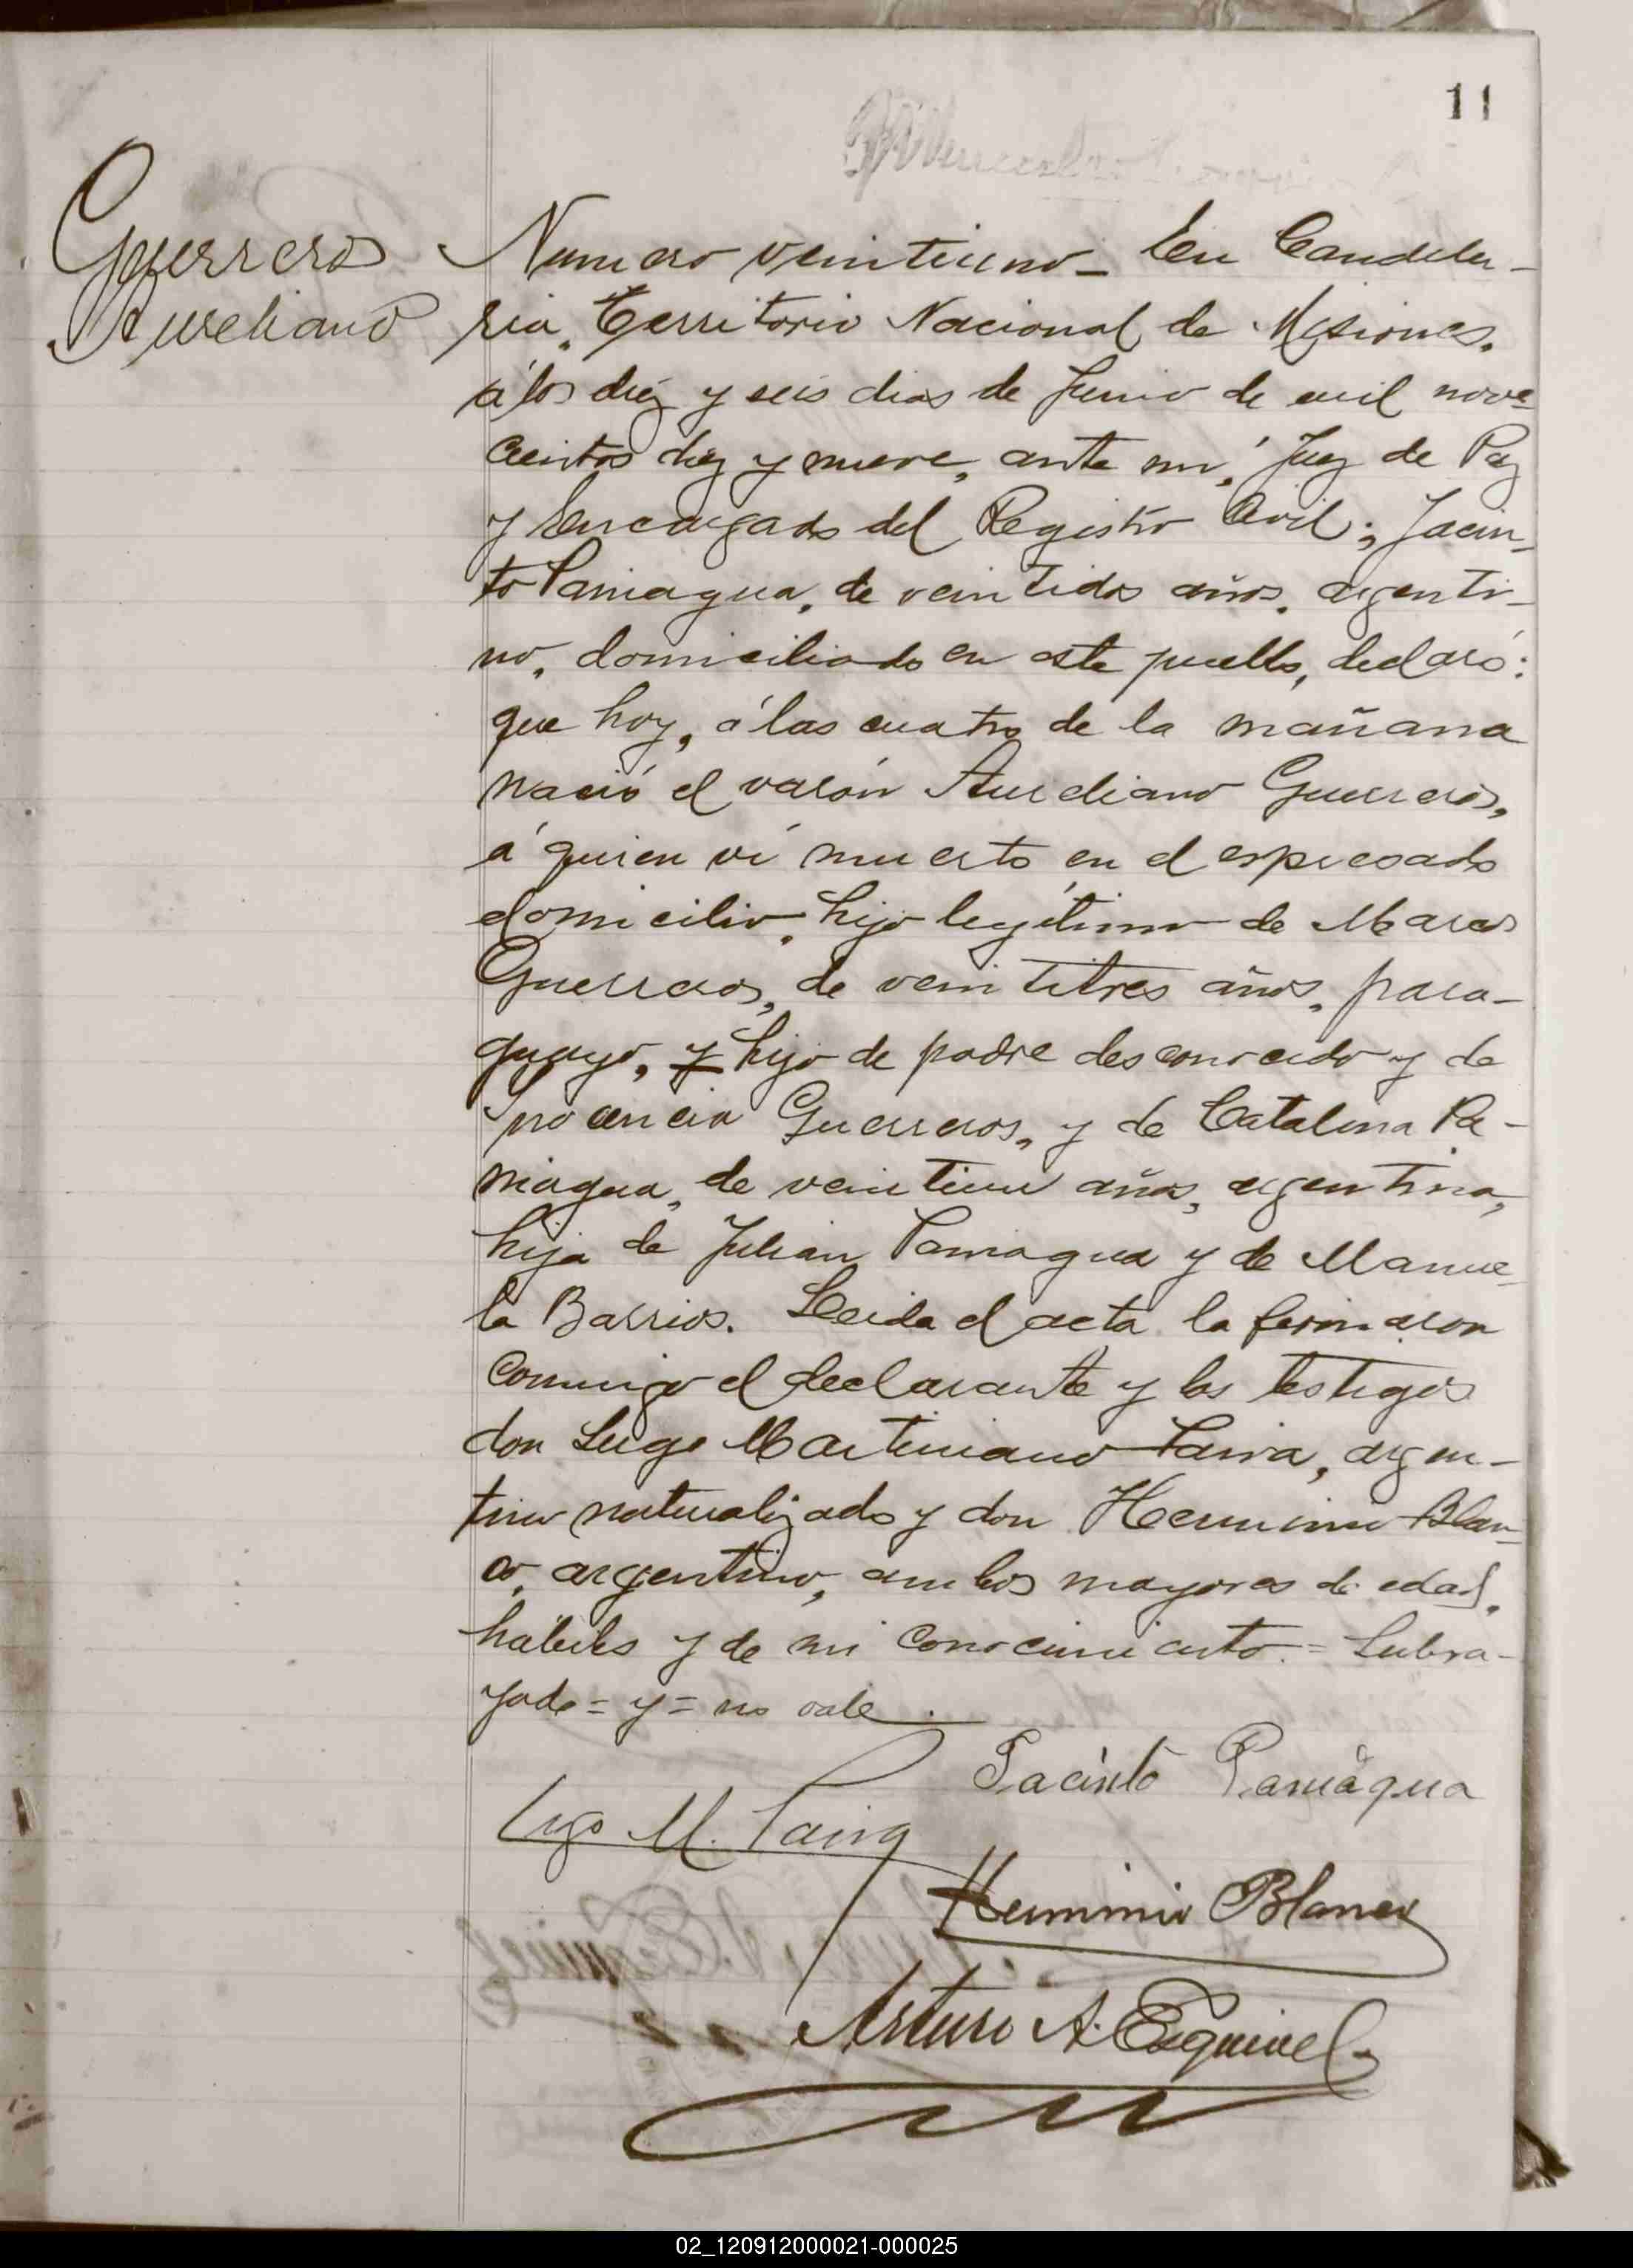 11
Guerrero
Aureliano
Numero veintiuno - En Candela-
ria, Territorio Nacional de Misiones,
á los diéz y seis dias de Junio de mil nove-
cientos diez y nueve, ante mi, Juez de Paz
y Encargado del Registro Civil; Jacin-
to Paniagua, de veintidos años, argenti-
no, domiciliado en este pueblo, declaró:
que hoy, á las cuatro de la mañana
nació el varón Aureliano Guerrero,
á quien ví muerto en el espresado
domicilio, hijo legítimo de Marcos
Guerrero, de veintitres años, para-
guayo, y hijo de padre desconocido y de
Inocencia Guerrero, y de Catalina Pa-
niagua, de veintiun años, argentina,
hija de Julian Paniagua y de Manue-
la Barrios. Leida el acta la firmaron
conmigo el declarante y los testigos
don Lugo Martiniano, argen-
tino naturalizado y don Herminio Blan-
co, argentino, ambos mayores de edad,
habiles y de mi conocimiento = Subra-
yado = y = no vale.
Jacinto Paniagua
Lugo M.
Herminio Blanco
Arturo A. Esquivel
02_120912000021-000025